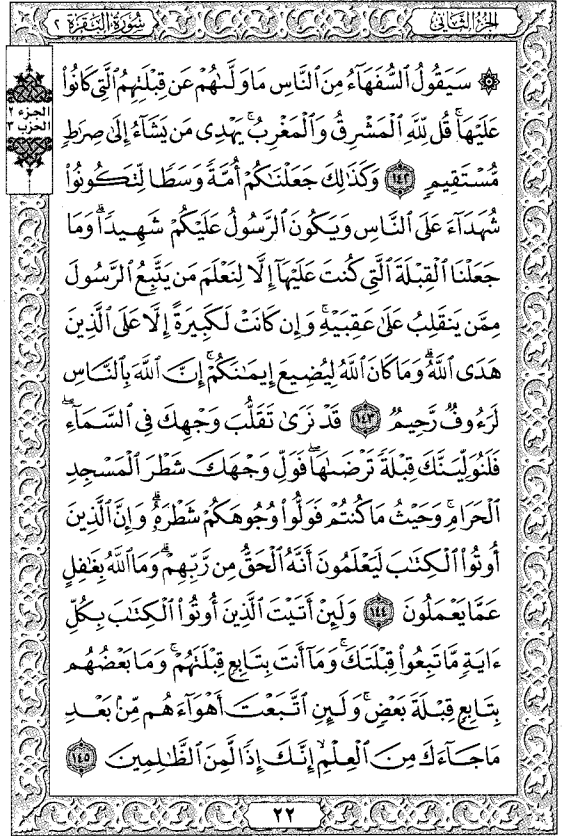 الجزء الثاني
سورة البقرة ٢
الجزء ٢
الحزب ٣
۞ سَيَقُولُ ٱلسُّفَهَآءُ مِنَ ٱلنَّاسِ مَا وَلَّىٰهُمْ عَن قِبْلَتِهِمُ ٱلَّتِى كَانُوا۟
عَلَيْهَا ۚ قُل لِّلَّهِ ٱلْمَشْرِقُ وَٱلْمَغْرِبُ ۚ يَهْدِى مَن يَشَآءُ إِلَىٰ صِرَٰطٍ
مُّسْتَقِيمٍ ﴿١٤٢﴾ وَكَذَٰلِكَ جَعَلْنَٰكُمْ أُمَّةً وَسَطًا لِّتَكُونُوا۟
شُهَدَآءَ عَلَى ٱلنَّاسِ وَيَكُونَ ٱلرَّسُولُ عَلَيْكُمْ شَهِيدًا ۗ وَمَا
جَعَلْنَا ٱلْقِبْلَةَ ٱلَّتِى كُنتَ عَلَيْهَآ إِلَّا لِنَعْلَمَ مَن يَتَّبِعُ ٱلرَّسُولَ
مِمَّن يَنقَلِبُ عَلَىٰ عَقِبَيْهِ ۚ وَإِن كَانَتْ لَكَبِيرَةً إِلَّا عَلَى ٱلَّذِينَ
هَدَى ٱللَّهُ ۗ وَمَا كَانَ ٱللَّهُ لِيُضِيعَ إِيمَٰنَكُمْ ۚ إِنَّ ٱللَّهَ بِٱلنَّاسِ
لَرَءُوفٌ رَّحِيمٌ ﴿١٤٣﴾ قَدْ نَرَىٰ تَقَلُّبَ وَجْهِكَ فِى ٱلسَّمَآءِ ۖ
فَلَنُوَلِّيَنَّكَ قِبْلَةً تَرْضَىٰهَا ۚ فَوَلِّ وَجْهَكَ شَطْرَ ٱلْمَسْجِدِ
ٱلْحَرَامِ ۚ وَحَيْثُ مَا كُنتُمْ فَوَلُّوا۟ وُجُوهَكُمْ شَطْرَهُۥ ۗ وَإِنَّ ٱلَّذِينَ
أُوتُوا۟ ٱلْكِتَٰبَ لَيَعْلَمُونَ أَنَّهُ ٱلْحَقُّ مِن رَّبِّهِمْ ۗ وَمَا ٱللَّهُ بِغَٰفِلٍ
عَمَّا يَعْمَلُونَ ﴿١٤٤﴾ وَلَئِنْ أَتَيْتَ ٱلَّذِينَ أُوتُوا۟ ٱلْكِتَٰبَ بِكُلِّ
ءَايَةٍ مَّا تَبِعُوا۟ قِبْلَتَكَ ۚ وَمَآ أَنتَ بِتَابِعٍ قِبْلَتَهُمْ ۚ وَمَا بَعْضُهُم
بِتَابِعٍ قِبْلَةَ بَعْضٍ ۚ وَلَئِنِ ٱتَّبَعْتَ أَهْوَآءَهُم مِّنۢ بَعْدِ
مَا جَآءَكَ مِنَ ٱلْعِلْمِ ۙ إِنَّكَ إِذًا لَّمِنَ ٱلظَّٰلِمِينَ ﴿١٤٥﴾
٢٢